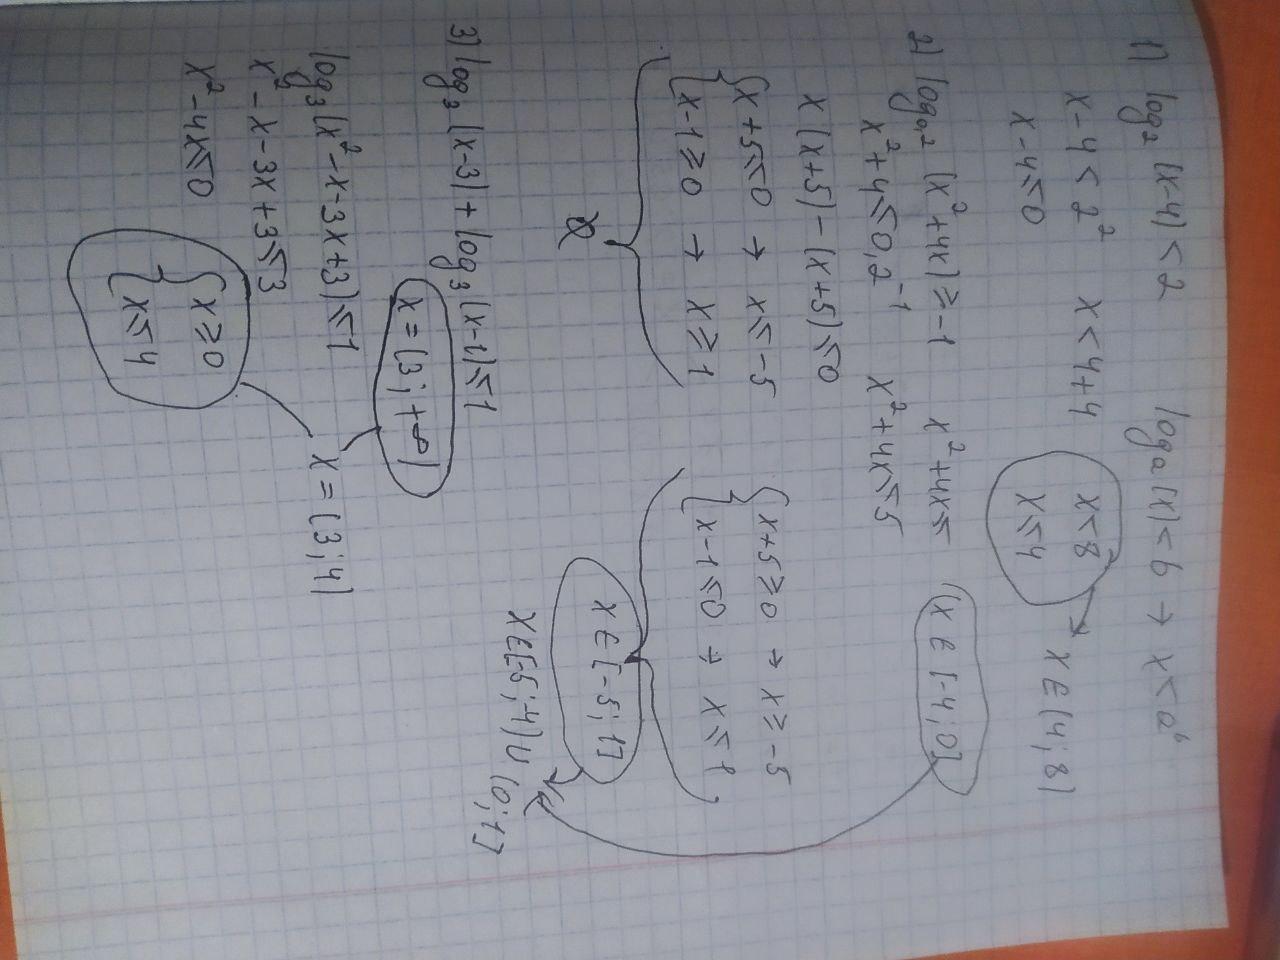 1) log₂(x-4)<2 logₐ(x)<b → x<aᵇ
x-4<2² x<4+4 x<8
x-4≤0 x≤4 x∈(4;8)
2) log₀,₂(x²+4x)≥-1 x²+4x≤ (x∈[-4;0]
x²+4≤0,2⁻¹ x²+4x≤5
x(x+5)-(x+5)≤0
{x+5≤0 → x≤-5 {x+5≥0 → x≥-5
{x-1≥0 → x≥1 {x-1≤0 → x≤1
x∈[-5;1]
x∈[-5;-4)∪(0;1]
3) log₃(x-3)+log₃(x-1)≤1
x=(3;+∞)
log₃(x²-x-3x+3)≤1 x=(3;4)
x²-x-3x+3≤3
x²-4x≤0 {x≥0
{x≤4